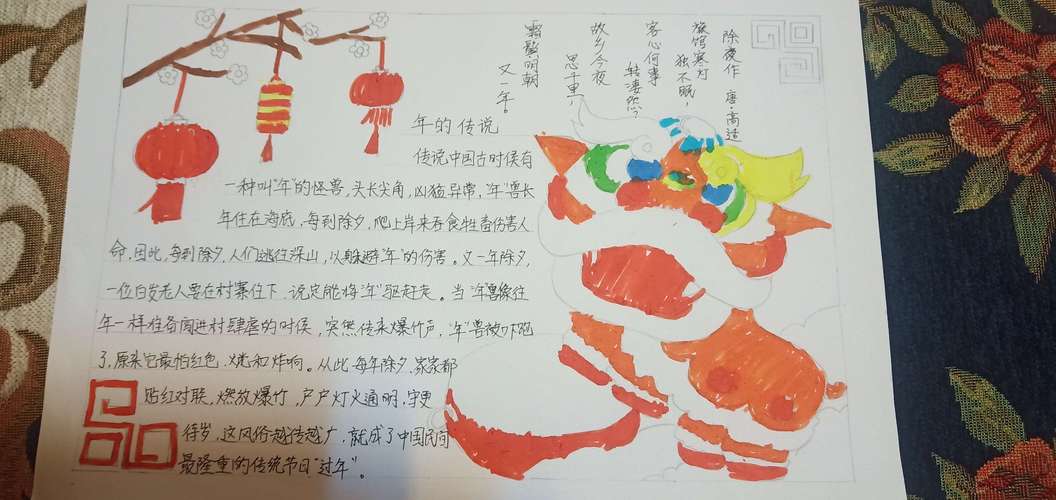 除夜作 唐·高适
旅馆寒灯
独不眠，
客心何事
转凄然？
故乡今夜
思千里，
霜鬓明朝
又一年。
年的传说
传说中国古时候有
一种叫"年"的怪兽，头长尖角，凶猛异常，"年"兽长
年住在海底，每到除夕，爬上岸来吞食牲畜伤害人
命，因此，每到除夕，人们逃往深山，以躲避"年"的伤害。又一年除夕，
一位白发老人要在村寨住下，说定能将"年"驱赶走。当"年"兽象往
年一样准备闯进村肆虐的时候，突然传来爆竹声，"年"兽被吓跑
了，原来它最怕红色、火光和炸响。从此每年除夕，家家都
贴红对联，燃放爆竹，户户灯火通明，守更
待岁，这风俗越传越广，就成了中国民间
最隆重的传统节日"过年"。